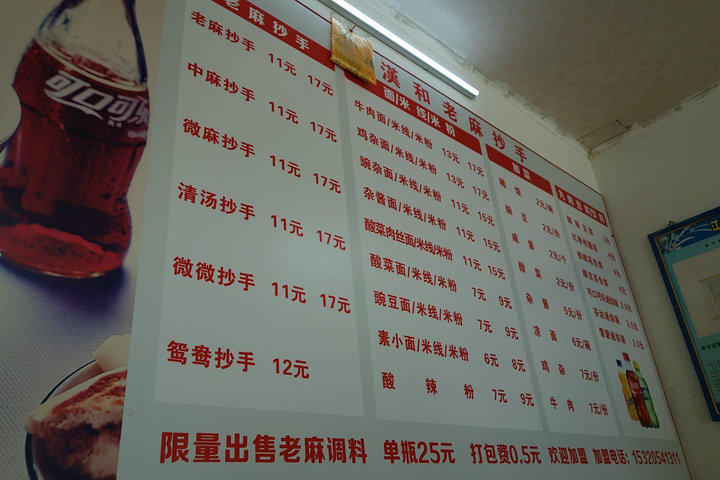 可口可乐
漢和老麻抄手
老麻抄手
老麻抄手 11元 17元
中麻抄手 11元 17元
微麻抄手 11元 17元
清汤抄手 11元 17元
微微抄手 11元 17元
鸳鸯抄手 12元
面/米线/米粉
牛肉面/米线/米粉 13元 17元
鸡杂面/米线/米粉 13元 17元
豌杂面/米线/米粉 11元 15元
杂酱面/米线/米粉 11元 15元
酸菜肉丝面/米线/米粉 11元 15元
酸菜面/米线/米粉 7元 9元
豌豆面/米线/米粉 7元 9元
素小面/米线/米粉 6元 8元
酸辣粉 7元 9元
2元/碗
豌豆 2元/份
咸蛋 2元/个
酸菜 2元/份
杂酱 5元/份
凉面 6元/碗
鸡杂 7元/份
牛肉 7元/份
限量出售老麻调料 单瓶25元 打包费0.5元 欢迎加盟 加盟电话:15320541311